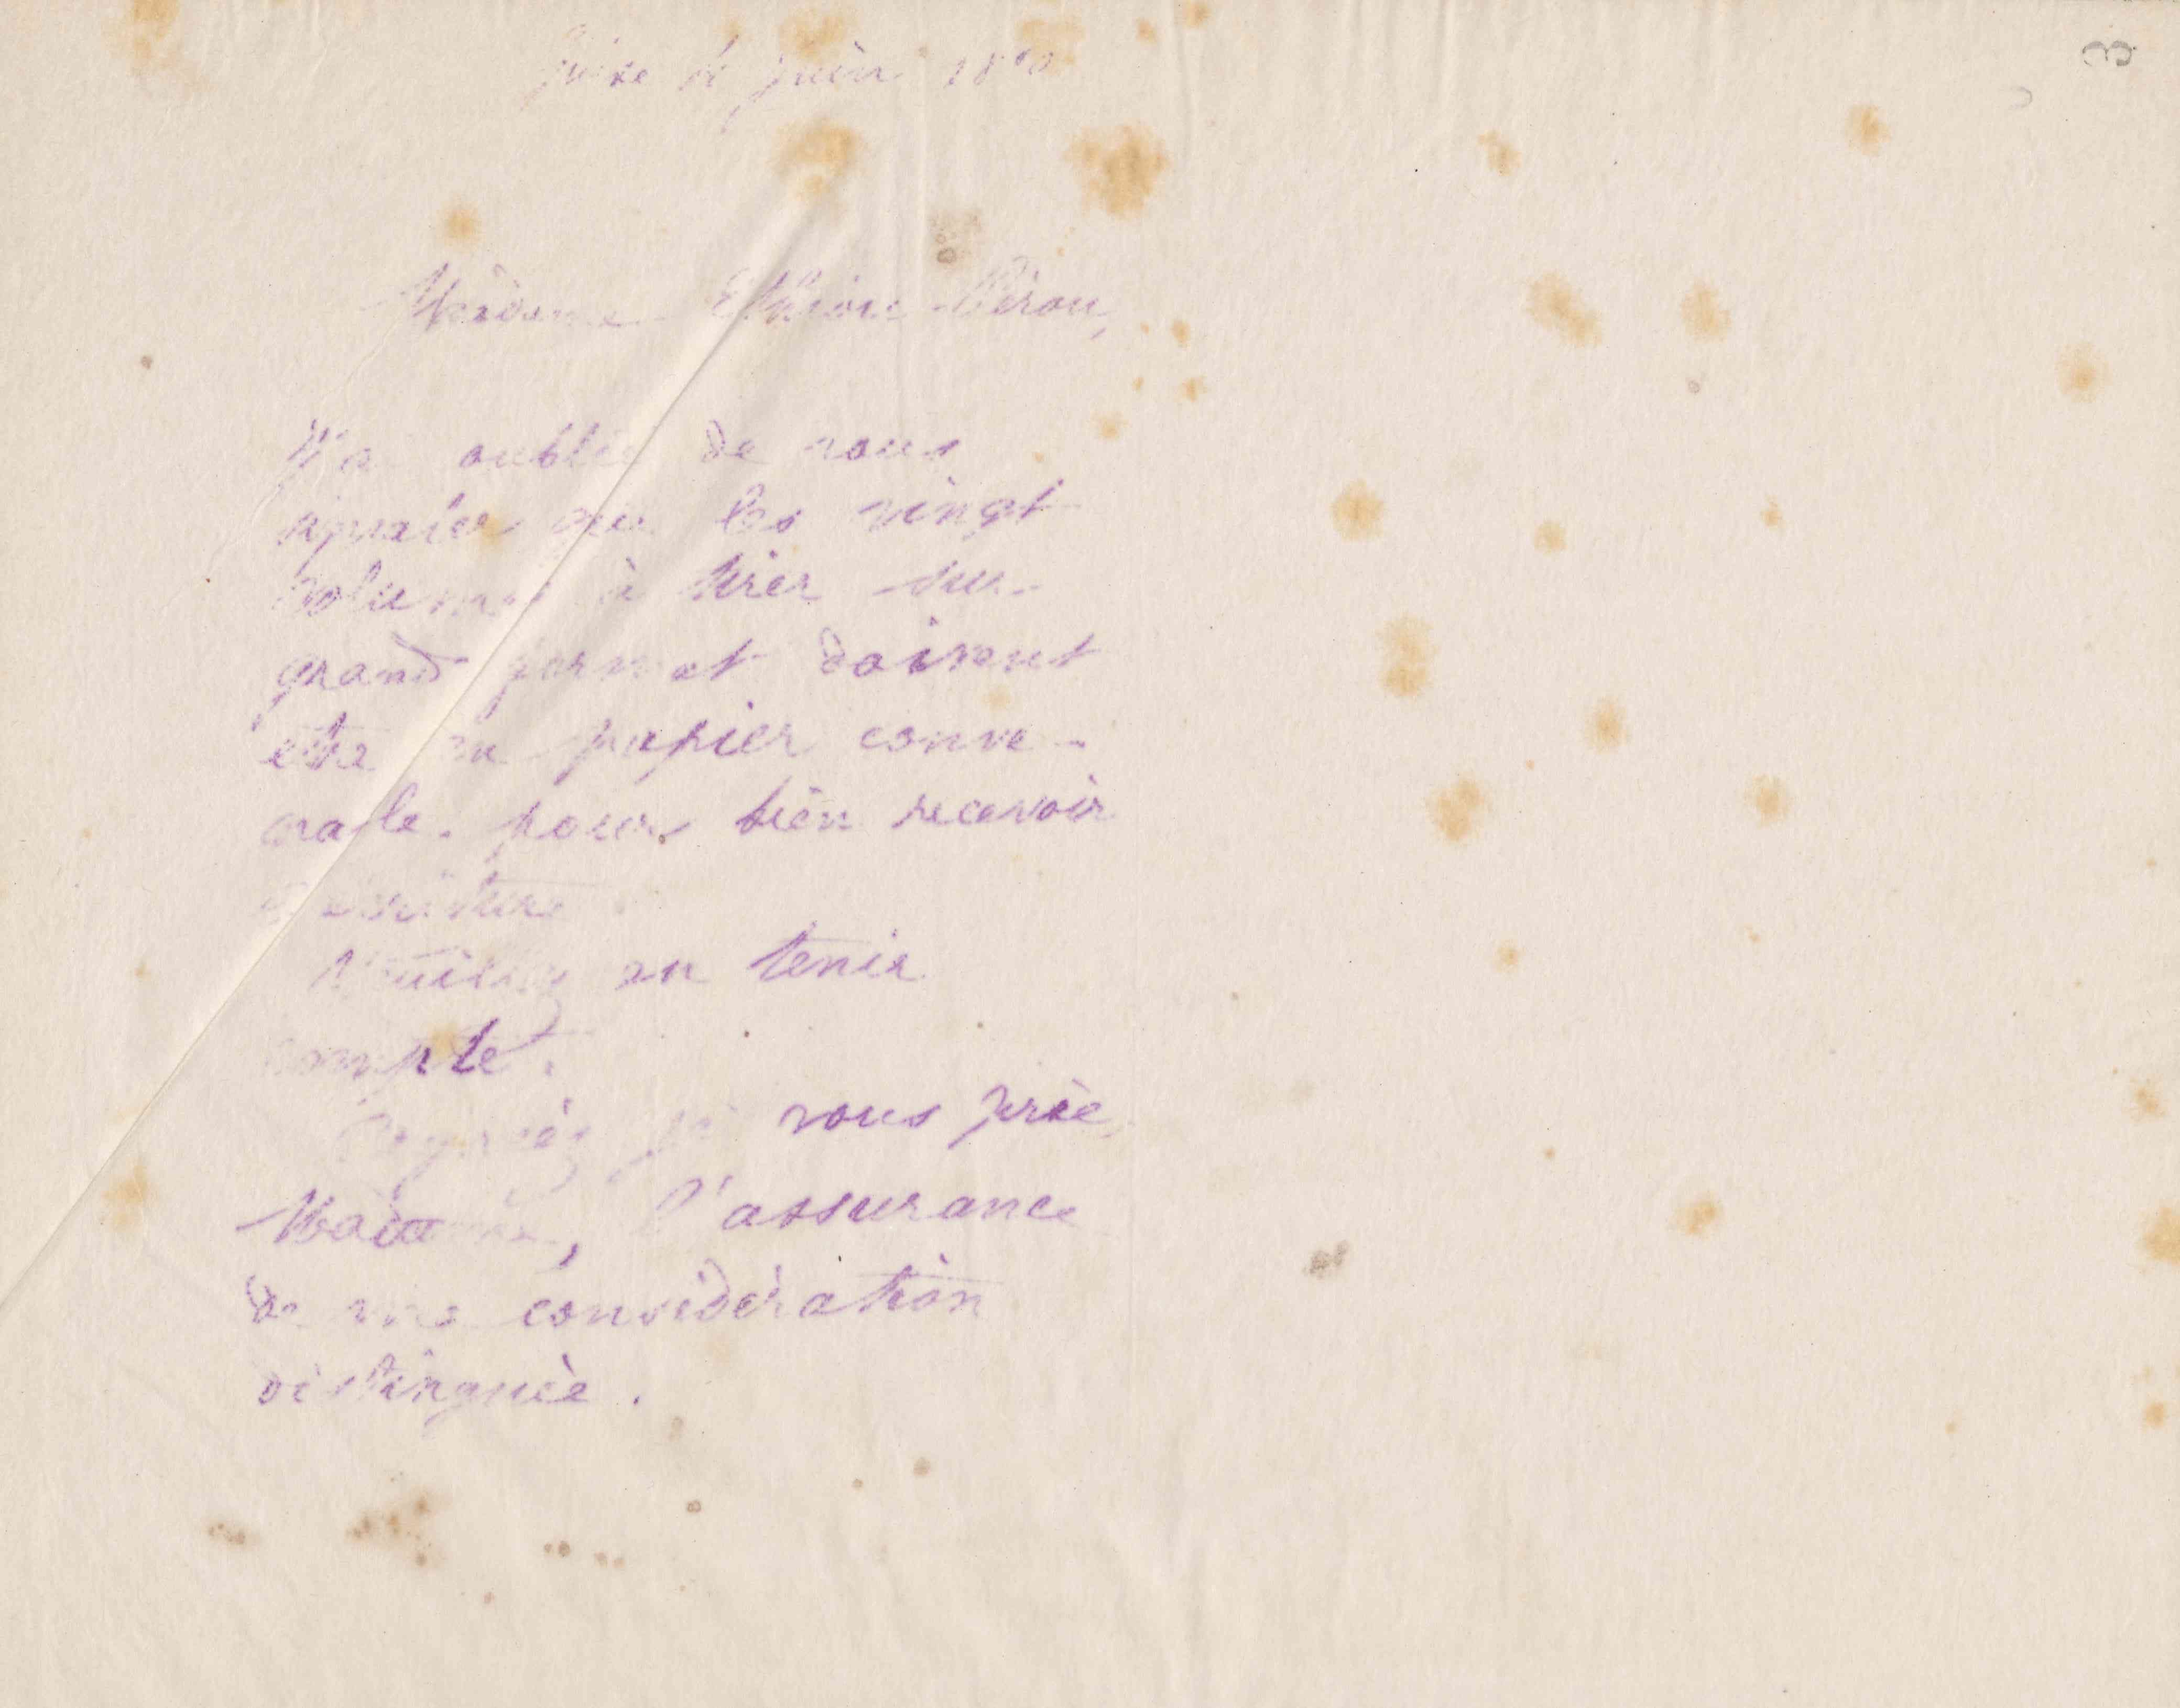 Guise 4 juin
Madame Ethiou-Pérou,
J'ai oublié de vous
que les vingt
volumes à tirer sur
grand format doivent
être en papier conve-
nable pour bien recevoir
l'écriture
Veuillez en tenir
compte.
Agréez je vous prie,
Madame, l'assurance
de ma considération
distinguée.
3